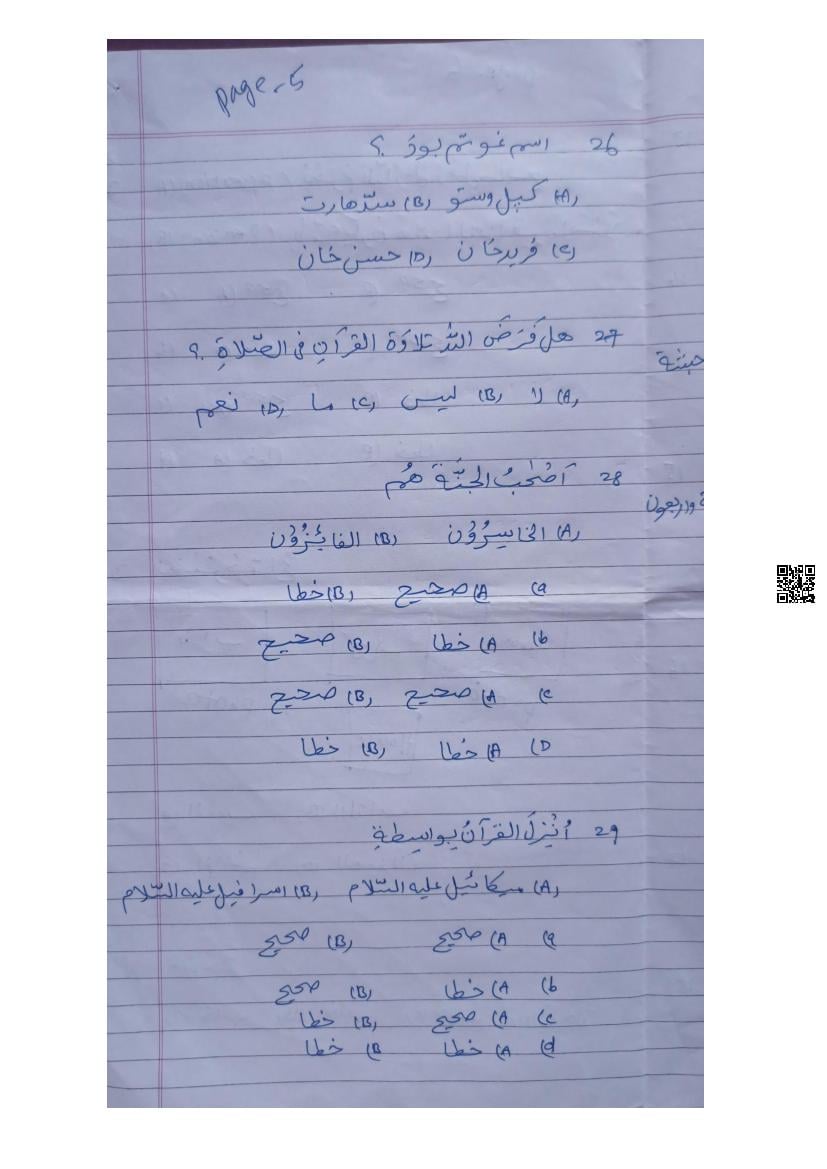 page-5
26 اسم غوتم بودَ ؟
(A) کپل وستو (B) سدّھارت
(C) فرید خان (D) حسن خان
27 هل فَرَضَ اللہُ تلاوَة القرآنِ فى الصّلاةِ ؟
(A) لا (B) ليس (C) ما (D) نعم
28 اَصْحٰبُ الجَنَّة هُم
(A) الخاسِرُوْن (B) الفائِزُوْن
(a (A صحيح (B) خطا
(b (A خطا (B) صحيح
(c (A صحيح (B) صحيح
(D (A خطا (B) خطا
29 اُنْزِلَ القرآنُ بِواسِطةِ
(A) ميكائيل عليه السّلام (B) اسرافيل عليه السّلام
(a (A صحيح (B) صحيح
(b (A خطا (B) صحيح
(c (A صحيح (B) خطا
(d (A خطا (B خطا